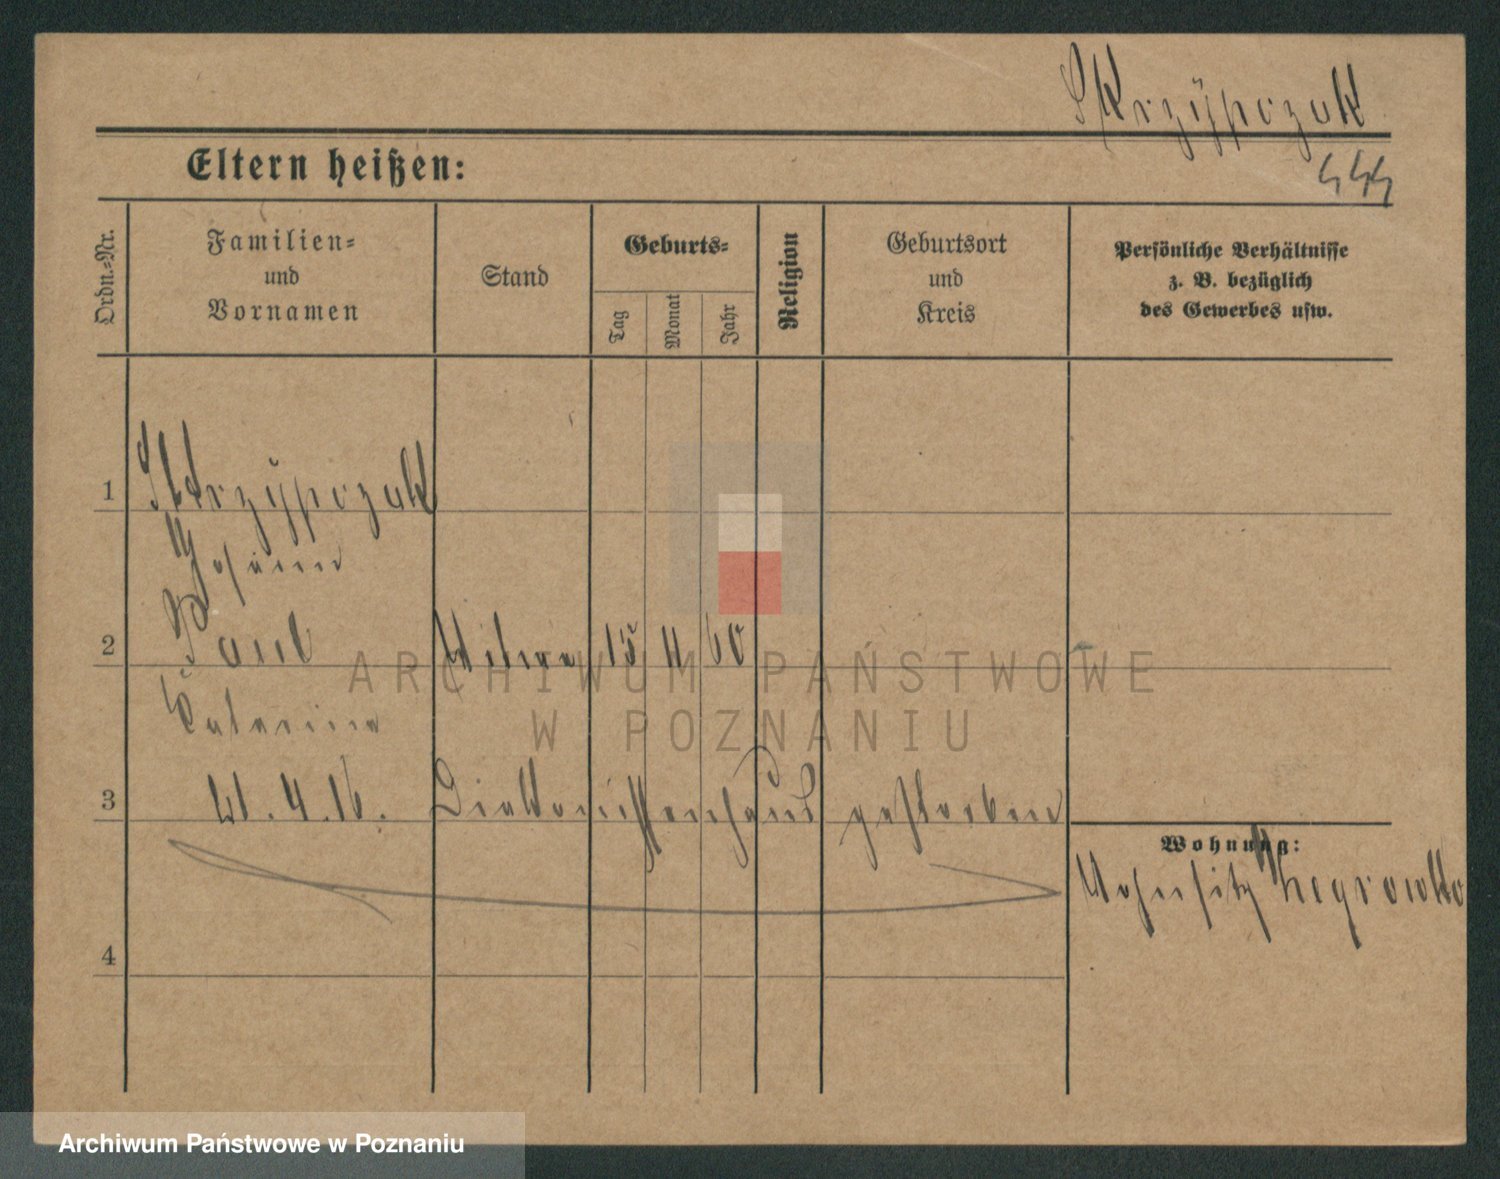 Skrzypczak
444
Eltern heißen:
Ordn.-Nr.
Familien=
und
Vornamen
Stand
Geburts=
Tag
Monat
Jahr
Religion
Geburtsort
und
Kreis
Persönliche Verhältnisse
z. B. bezüglich
des Gewerbes usw.
1 Skrzypczak
2 Witwe 15 11 60
Katarina
3 21.4.16. Diakonissenhaus gestorben
Wohnung:
Wohnsitz
4
ARCHIWUM PAŃSTWOWE
W POZNANIU
Archiwum Państwowe w Poznaniu